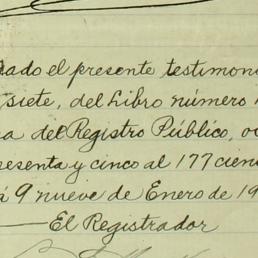 ado el presente testimon
siete, del Libro número
a del Registro Público,
esenta y cinco al 177 cien
á 9 nueve de Enero de 19
El Registrador